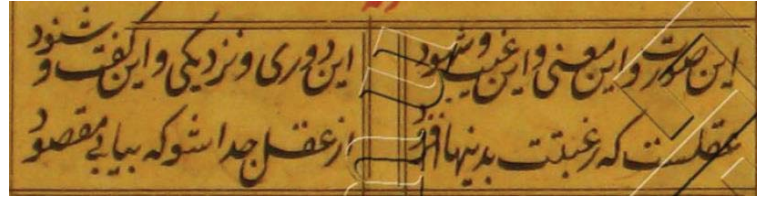 این صورت و این معنی و این غیب و شهود
این دوری و نزدیکی و این گفت و شنود
عقلست که رغبتت بدینها افزود
از عقل جدا شو که بیابی مقصود